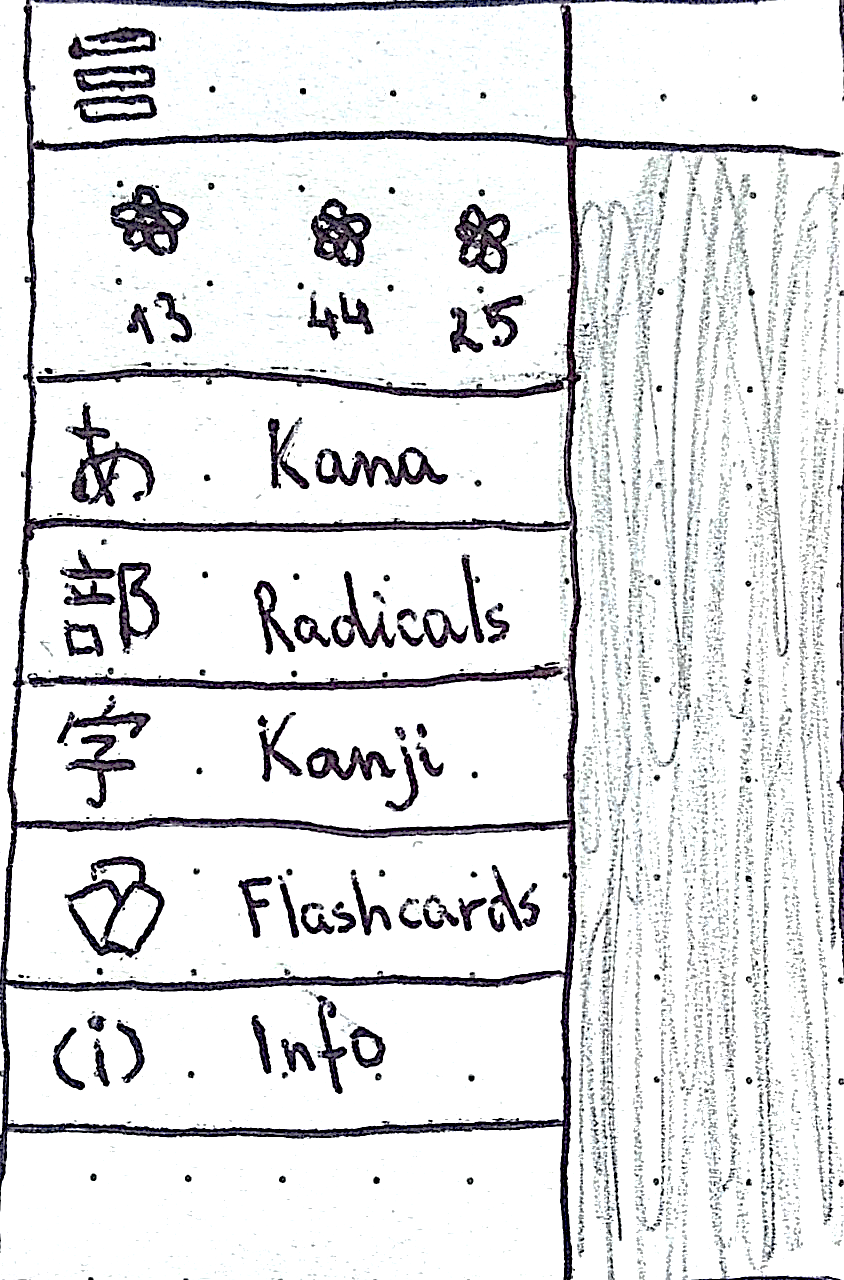 13 44 25
あ Kana
部 Radicals
字 Kanji
Flashcards
(i) Info